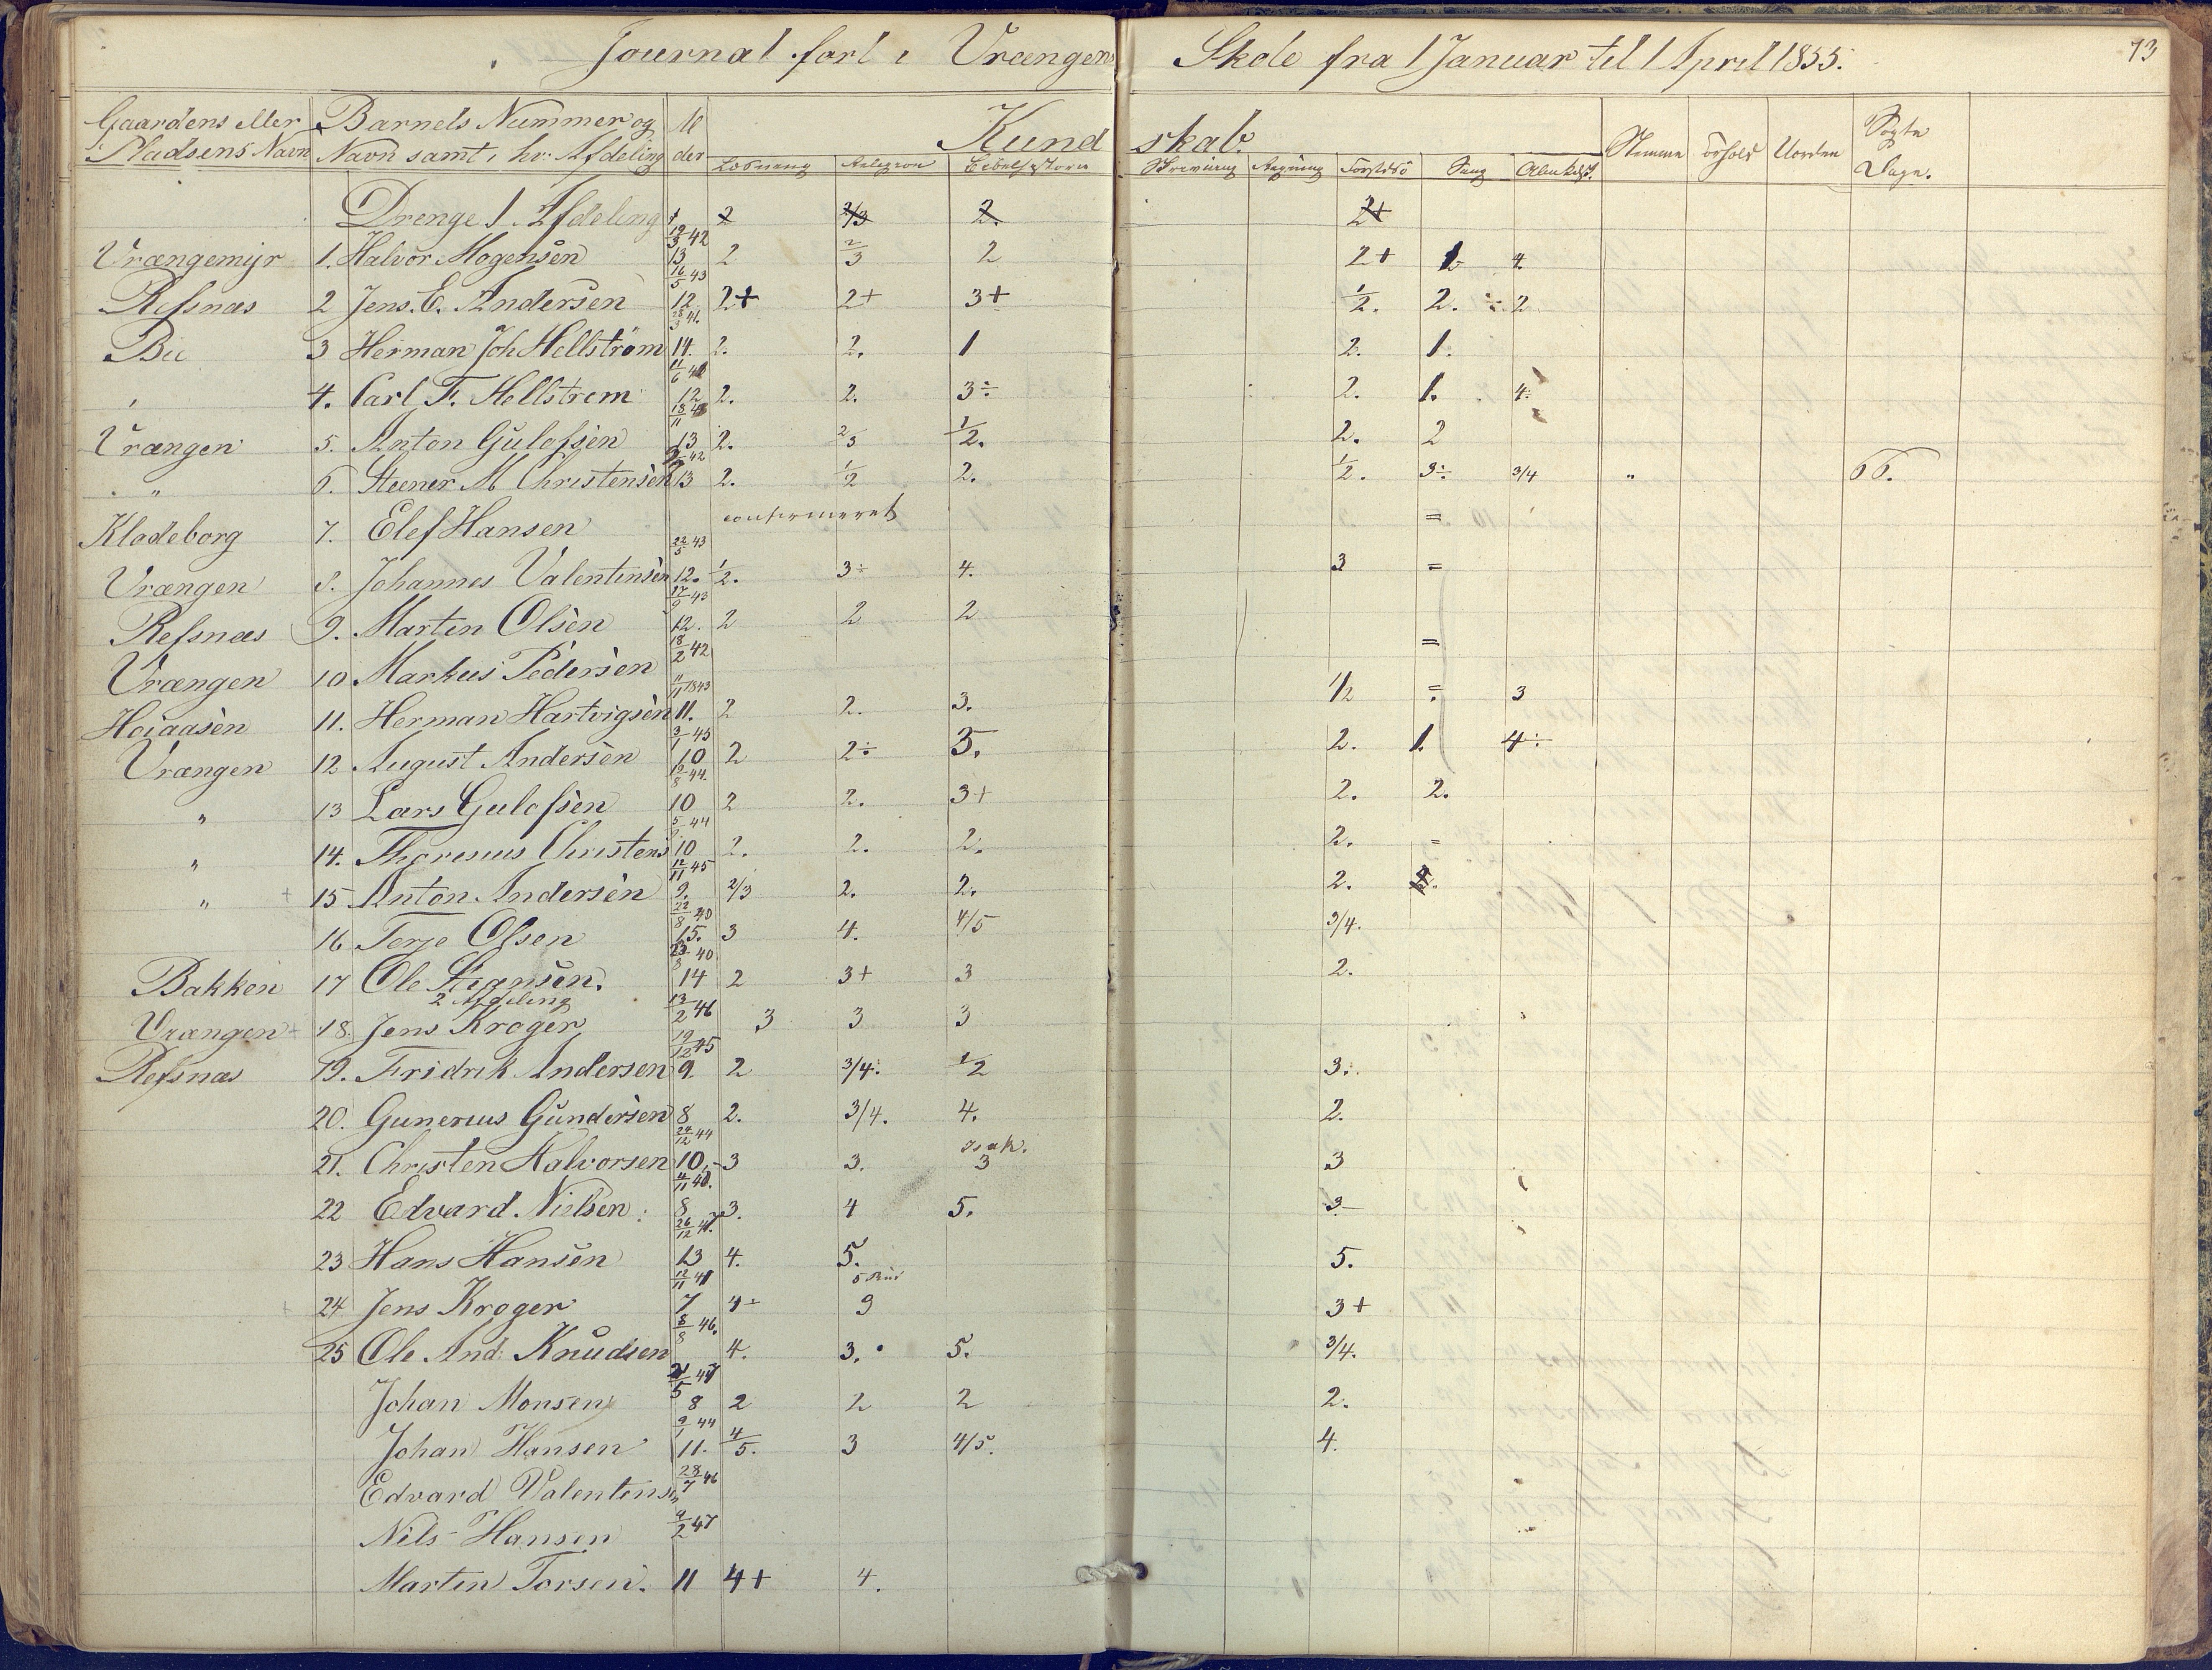 Journal ført i Vrængens Skole fra 1 Januar til 1 April 1855. 73
Gaardens eller Pladsens Navn | Barnets Nummer og Navn samt i hv: Afdeling | Al der | Kundskab.
Læsning | Religion | Bibelhistorie | Skrivning | Regning | Forstdsö | Sang | | Stemme | Forhold | Uorden | Søgte Dage.
Drenge 1 Afdeling 2 2/3 2. 2+
Vrængemyr 1. Halvor Mogensen 19/3 42 13 2 2/3 2 2+ 1 4.
Refsnæs 2 Jens. E. Andersen 16/5 43 12. 2+ 2+ 3+ 1/2. 2. ÷2
Bie 3 Herman Joh Hellstrøm 28/3 41. 14. 2. 2. 1 2. 1.
" 4. Carl F. Hellstrem 12 2. 2. 3÷ 2. 1. 4.
Vrængen 5. Anton Gulofsen 13 2. 2/3 1/2. 2. 2
" 6. Steener M Christensen 42 13 2. 1/2 2. 1/2. 3÷ 3/4 " 66.
Kladeborg 7. Elef Hansen confirmeret =
Vrængen 8. Johannes Valentinsen 22/5 43 12. 1/2. 3÷ 4. 3 =
Refsnæs 9. Marten Olsen 17/9 43 12. 2 2 2
Vrængen 10 Markus Pedersen 18/2 42 =
Hoiaasen 11. Herman Hartvigsen 11/11 1843 11. 2 2. 3. 1/2 = 3
Vrængen 12 August Andersen 3/1 45 10 2 2÷ 5. 2. 1. 4÷
" 13 Lars Gulofsen 12/8 44. 10 2 2. 3+ 2. 2.
" 14. Thorenius Christens 44 10 2. 2. 2. 2. =
" + 15 Anton Andersen 12/11 45 9. 2/3 2. 2. 2.
16 Terje Olsen 22/8 40 15. 3 4. 4/5 3/4.
Bakken 17 Ole Stiansen. 23/8 40 14 2 3+ 3 2.
2 Afdeling
Vrængen + 18. Jens Krøger 13/2 46 3 3 3
Refsnæs 19. Fridrik Andersen 19/12 45 9. 2 3/4. 1/2 3.
20. Gunerius Gundersen 8 2. 3/4. 4. 2.
21. Christen Halvorsen 24/12 44 10, 3 3. Isak. 3 3
22 Edvard Nielsen 8 3. 4 5. 3
23 Hans Hansen 26/12 13 4. 5. 5.
+ 24 Jens Kroger 12/11 7 4÷ 3 3+
25 Ole And. Knudsen 8/8 46. 4. 3. 5. 3/4.
Johan Monsen 47 8 2 2 2 2.
Johan Hansen 9/1 44 11. 4/5. 3 4/5. 4.
Edvard Valentinsen 28/7 46
Nils Hansen 9/2 47
Martin Torsen. 11 4+ 4.